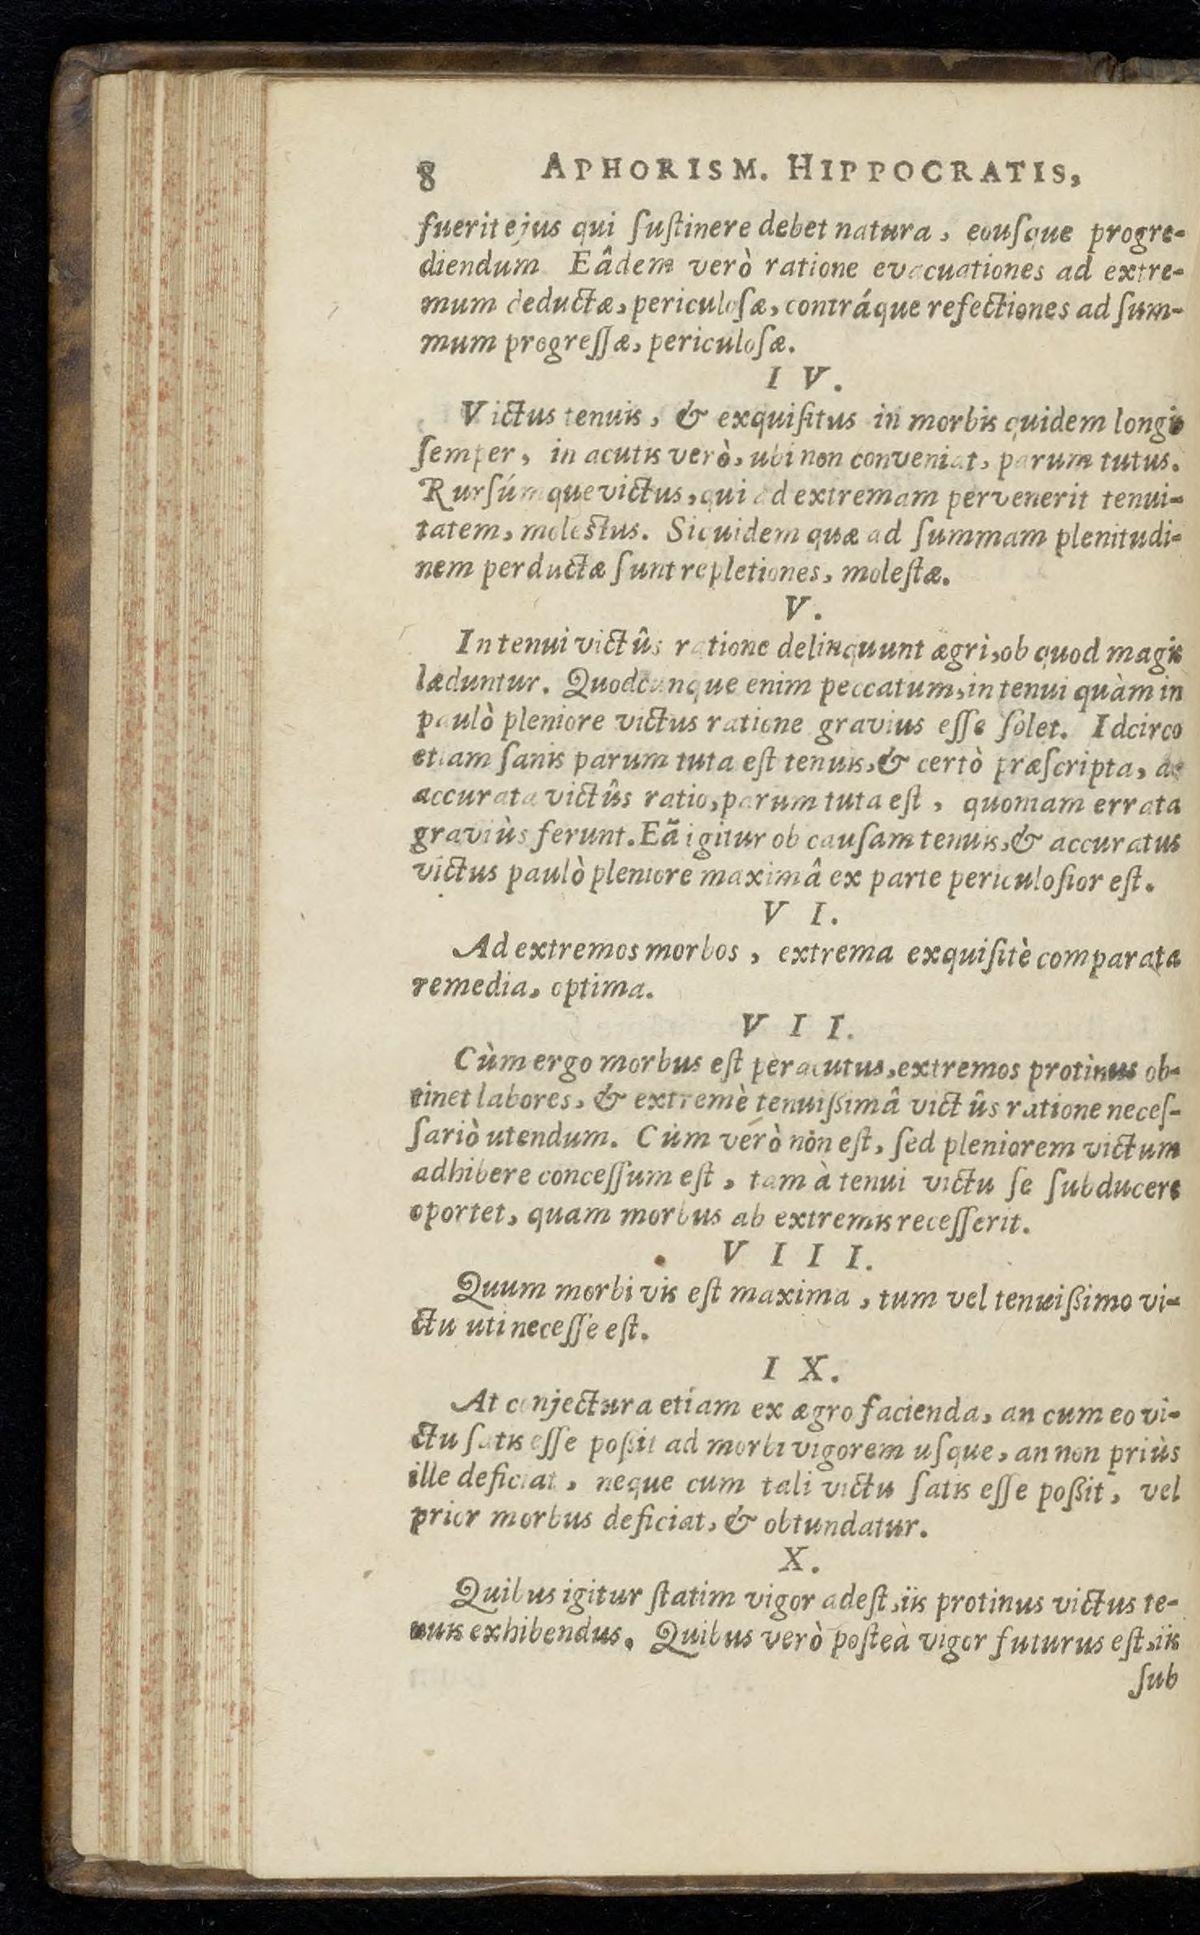 8 APHORISM. HIPPOCRATIS,
fuerit ejus qui ſuſtinere debet natura, eouſque progre-
diendum Eâdem verò ratione evacuationes ad extre-
mum deductæ, periculoſæ, contráque refectiones ad ſum-
mum progreſſæ, periculoſæ.
IV.
Victus tenuis, & exquiſitus in morbis quidem longis
ſemper, in acutis verò, ubi non conveniat, parum tutus.
Rurſúmque victus, qui ad extremam pervenerit tenui-
tatem, moleſtus. Siquidem quæ ad ſummam plenitudi-
nem perductæ ſunt repletiones, moleſtæ.
V.
In tenui victûs ratione delinquunt ægri, ob quod magis
læduntur. Quodcunque enim peccatum, in tenui quàm in
paulò pleniore victus ratione gravius eſſe ſolet. Idcirco
etiam ſanis parum tuta eſt tenuis, & certò præſcripta, ac
accurata victûs ratio, parum tuta eſt, quoniam errata
graviùs ferunt. Eâ igitur ob cauſam tenuis, & accuratus
victus paulò pleniore maximâ ex parte periculoſior eſt.
VI.
Ad extremos morbos, extrema exquiſitè comparata
remedia, optima.
VII.
Cùm ergo morbus eſt peracutus, extremos protinus ob-
tinet labores, & extremè tenuißimâ victûs ratione neceſ-
ſariò utendum. Cùm verò non eſt, ſed pleniorem victum
adhibere conceſſum eſt, tam à tenui victu ſe ſubducere
oportet, quam morbus ab extremis receſſerit.
VIII.
Quum morbi vis eſt maxima, tum vel tenuißimo vi-
ctu uti neceſſe eſt.
IX.
At conjectura etiam ex ægro facienda, an cum eo vi-
ctu ſatis eſſe poßit ad morbi vigorem uſque, an non priùs
ille deficiat, neque cum tali victu ſatis eſſe poßit, vel
prior morbus deficiat, & obtundatur.
X.
Quibus igitur ſtatim vigor adeſt, iis protinus victus te-
nuis exhibendus. Quibus verò poſteà vigor futurus eſt, iis
ſub